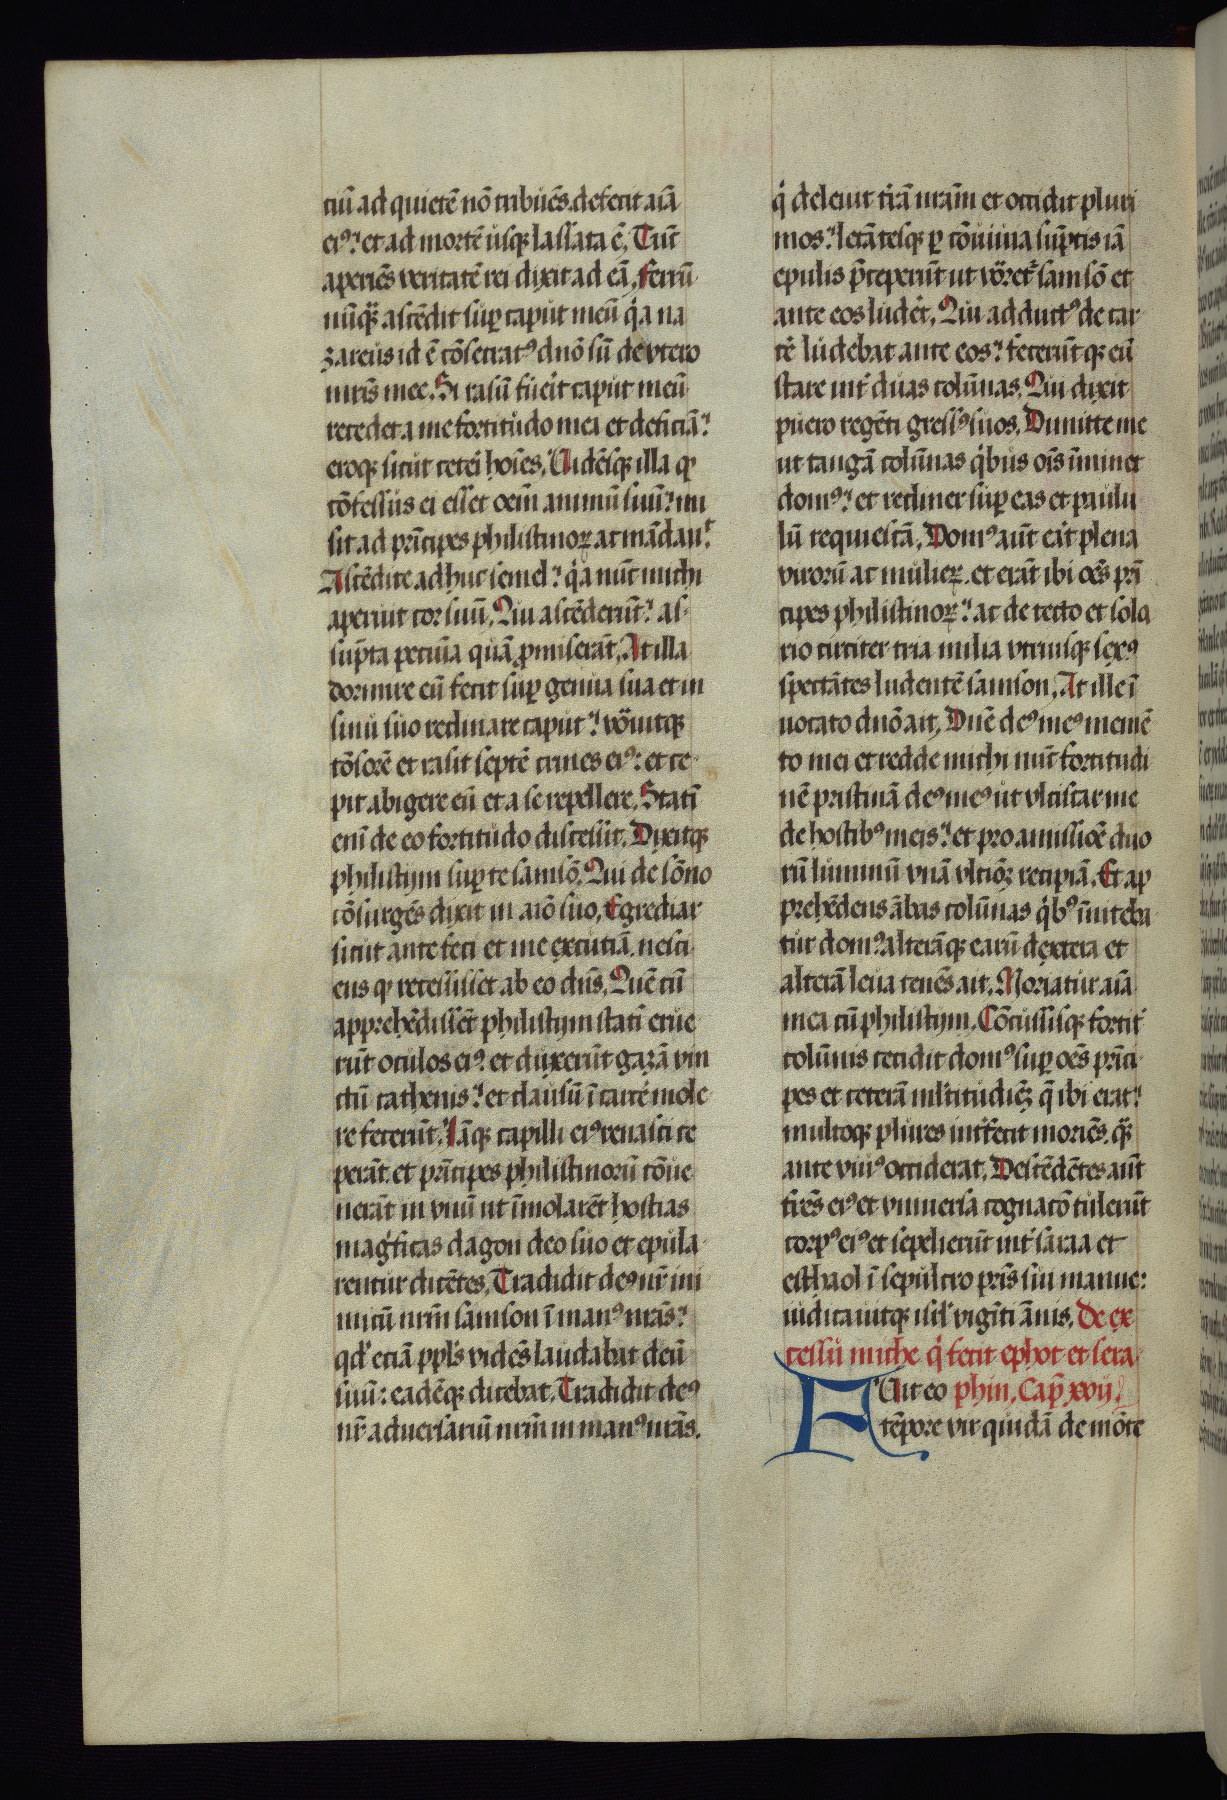 ciū ad quietē nō tribuēs. defecit aīa
eiꝰ: et ad mortē usq; lassata ē. Tūc
aperiēs veritatē rei dixit ad eā. Ferrū
nūq̄ꝫ ascēdit suꝑ caput meū q̇a na
zareus id ē cōsecratꝰ dnō sū de vtero
mr̄is mee. Si rasū fuerit caput meū
recedet a me fortitudo mea et deficiā:
eroq; sicut ceteri hoīes. Vidēsq; illa ꝙ
cōfessus ei esset oēm animū suū: mi
sit ad prīcipes philistinoꝝ ac mādauͭ.
Ascēdite adhuc semel: q̇a nūc michi
aperuit cor suū. Qui ascēderūt: as
sūpta pecūia quā ꝓmiserāt. At illa
dormire eū fecit suꝑ genua sua et in
sinu suo reclinare caput: vocauitq;
tōsorē et rasit septē crines eiꝰ: et ce
pit abigere eū et a se repellere. Statī
enī de eo fortitudo discessit. Dixitq;
philistijm suꝑ te samsō. Qui de sōno
cōsurgēs dixit in aīo suo. Egrediar
sicut ante feci et me excutiā. nesci
ens ꝙ recessisset ab eo dn̄s. Quē cū
apprehēdissēt philistijm statī erue
rūt oculos eiꝰ. et duxerūt gazā vin
ctū cathenis: et clausū ī carcē mole
re fecerūt. Iāq; capilli eiꝰ renasci ce
perāt. et prīcipes philistinorū cōue
nerāt in vnū ut īmolarēt hostias
magͥficas dagon deo suo et epula
rentur dicētes. Tradidit deꝰ nr̄ ini
micū nr̄m samson ī manꝰ nr̄as:
qd̓ etiā ppl̓s vidēs laudabat deū
suū: eadēq; dicebat. Tradidit deꝰ
nr̄ aduersariū nr̄m in manꝰ nr̄as.
q̇ deleuit tr̄ā nr̄am et occidit pluri
mos: letātesq; ꝑ cōuiuia sūptis iā
epulis p̄ceperūt ut vocaretᷣ samsō et
ante eos luderet. Qui adductꝰ de car
cē ludebat ante eos: fecerūtq; eū
stare int̓ duas colūnas. Qui dixit
puero regēti gressꝰ suos. Dimitte me
ut tangā colūnas q̇bus oīs īminet
domꝰ: et recliner suꝑ eas et paulu
lū requiescā. Domꝰ aūt erat plena
virorū ac mulieꝝ. et erāt ibi oēs prī
cipes philistinoꝝ: ac de tecto et sola
rio circiter tria milia vtriusq; sexꝰ
spectātes ludentē samson. At ille ī
uocato dnō ait. Dn̄e deꝰ meꝰ memē
to mei et redde michi nūc fortitudi
nē pristinā deꝰ meꝰ ut vlciscar me
de hostibꝰ meis: et pro amissiōe duo
rū luminū vnā vltiōꝫ recipiā. Et ap
prehēdens ābas colūnas q̇bꝰ īniteba
tur domꝰ alterāq; earū dextera et
alterā leua tenēs ait. Moriatur aīa
mea cū philistijm. Cōcussisq; fortiť
colūnis cecidit domꝰ suꝑ oēs prīci
pes et ceterā ml̓titudiēꝫ q̄ ibi erat:
multoq; plures int̓fecit moriēs. q̄ꝫ
ante viuꝰ occiderat. Descēdētes aūt
fr̄es eiꝰ et vniuersa cognacō tulerūt
corpꝰ eiꝰ et sepelierūt int̓ saraa et
esthaol ī sepulcro pr̄is sui manue:
iudicauitq; isrl̓ vigīti ānis. De ex
cessu miche q̇ fecit ephot et sera
Fuit eo phin. Cap̄. xvij.
tēpore vir quidā de mōte